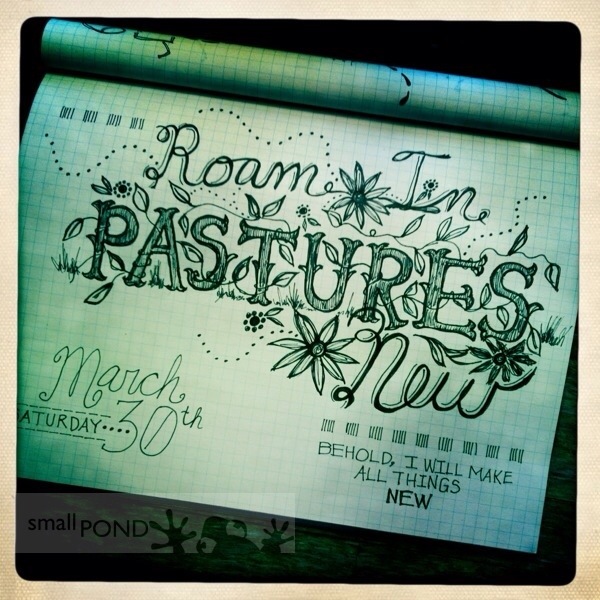 Roam In
PASTURES
New
March
SATURDAY....30th
BEHOLD, I WILL MAKE
ALL THINGS
NEW
small POND